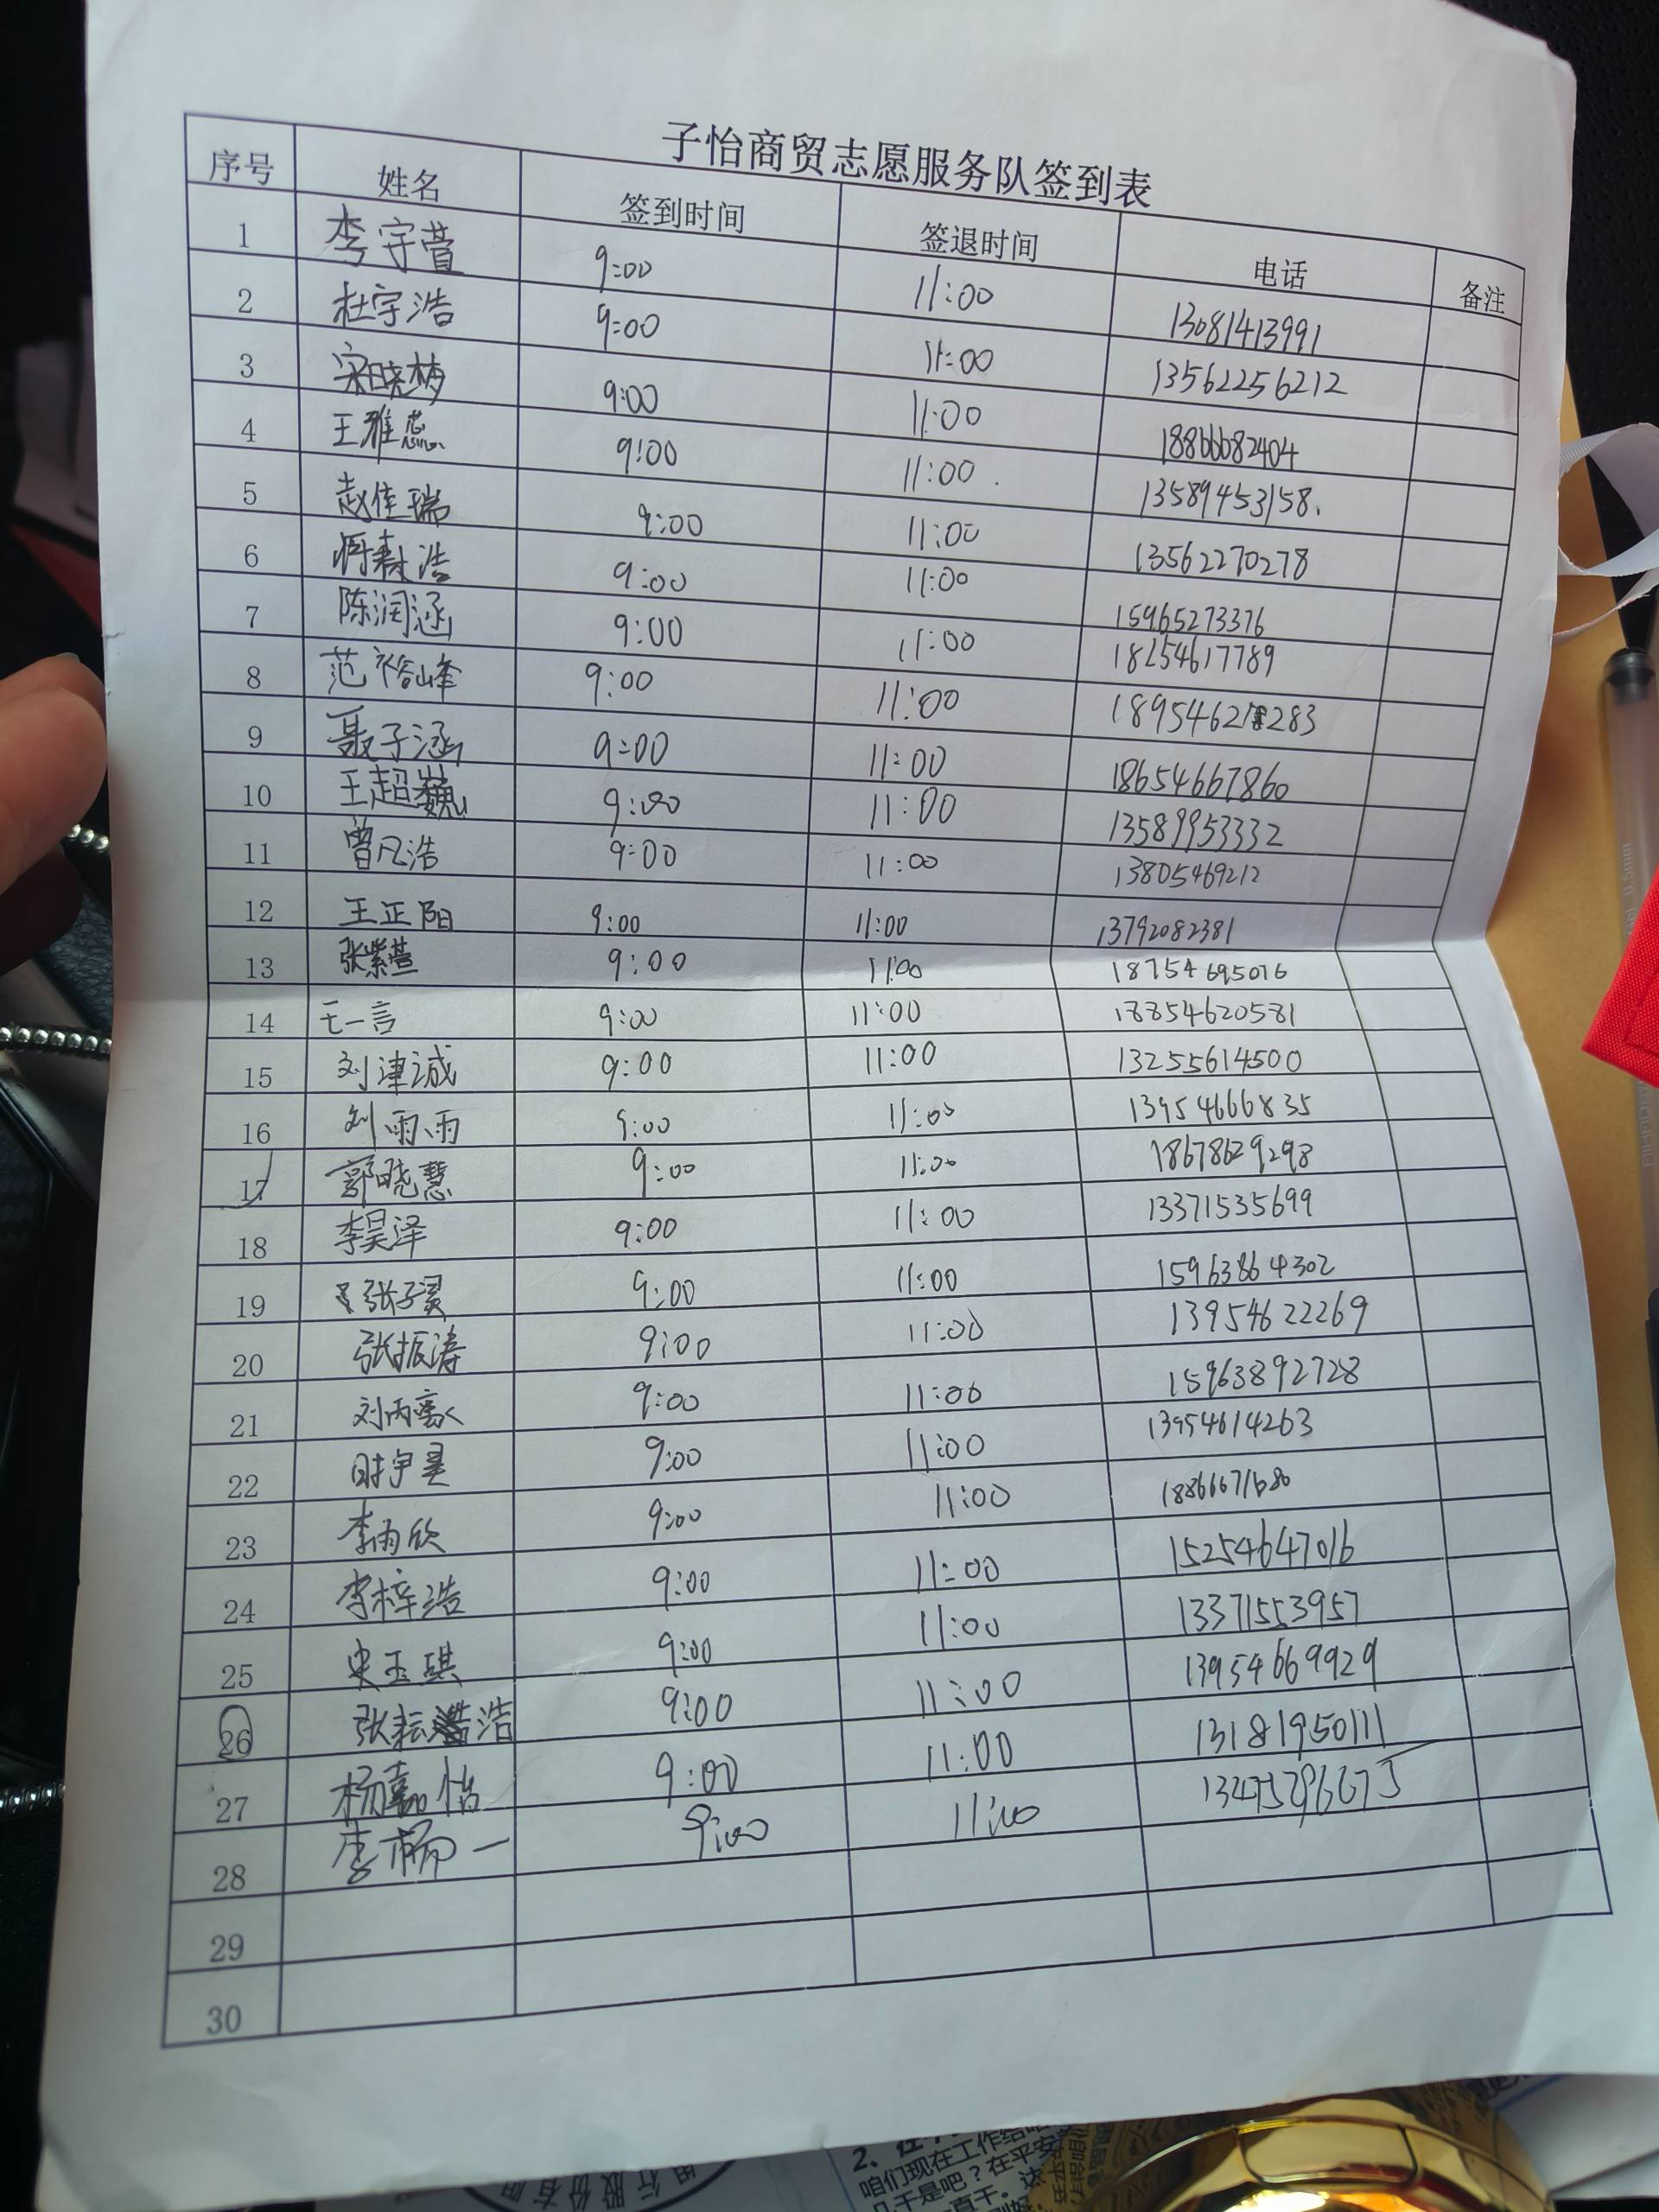 子怡商贸志愿服务队签到表
序号 姓名 签到时间 签退时间 电话 备注
1 李宇萱 9:00 11:00 13081413991
2 杜宇浩 9:00 11:00 13562256212
3 宋晓梦 9:00 11:00 18866682404
4 王雅蕊 9:00 11:00 13589453158.
5 赵佳瑞 9:00 11:00 13562270278
6 浩 9:00 11:00 15965273376
7 陈润涵 9:00 11:00 18254617789
8 范裕峰 9:00 11:00
9 聂子涵 9:00 11:00 18654667860
10 王超巍 9:00 11:00 13589953332
11 曾凡浩 9:00 11:00 13805469212
12 王正阳 9:00 11:00 13792082381
13 张紫萱 9:00 11:00 18754695076
14 王一言 9:00 11:00 18854620581
15 刘津诚 9:00 11:00 13255614500
16 刘雨雨 9:00 11:00 13954666835
17 郭晓慧 9:00 11:00 18678629298
18 李昊泽 9:00 11:00 13371535699
19 张子翼 9:00 11:00 15963864302
20 张振涛 9:00 11:00 13954622269
21 刘丙 9:00 11:00 15963892728
22 时宇 9:00 11:00 13954614263
23 李雨欣 9:00 11:00 18866671680
24 李梓浩 9:00 11:00 15254647016
25 宋玉琪 9:00 11:00 13371553957
26 张耘浩 9:00 11:00 13954669929
27 杨嘉怡 9:00 11:00 13181950111
28 李杨一 9:00 11:00 13475296675
29
30
咱们现在工作给咱
是吧？在平安
直干。这